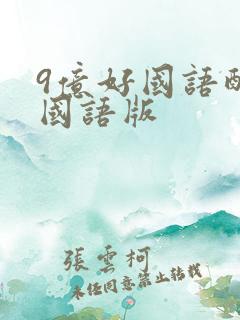 9億好國語
國語版
張雲柯
未經同意禁止轉載